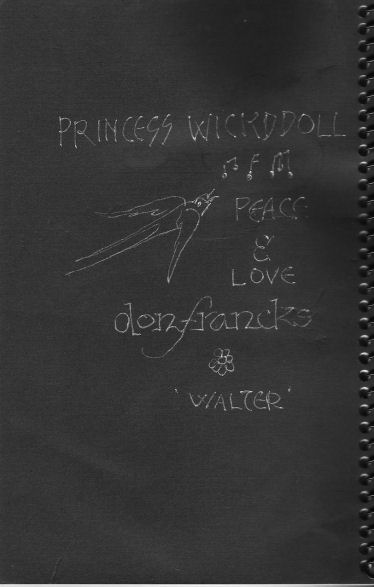 PRINCESS WICKDDOLL
PEACE
&
LOVE
donfrancks
'WALTER'